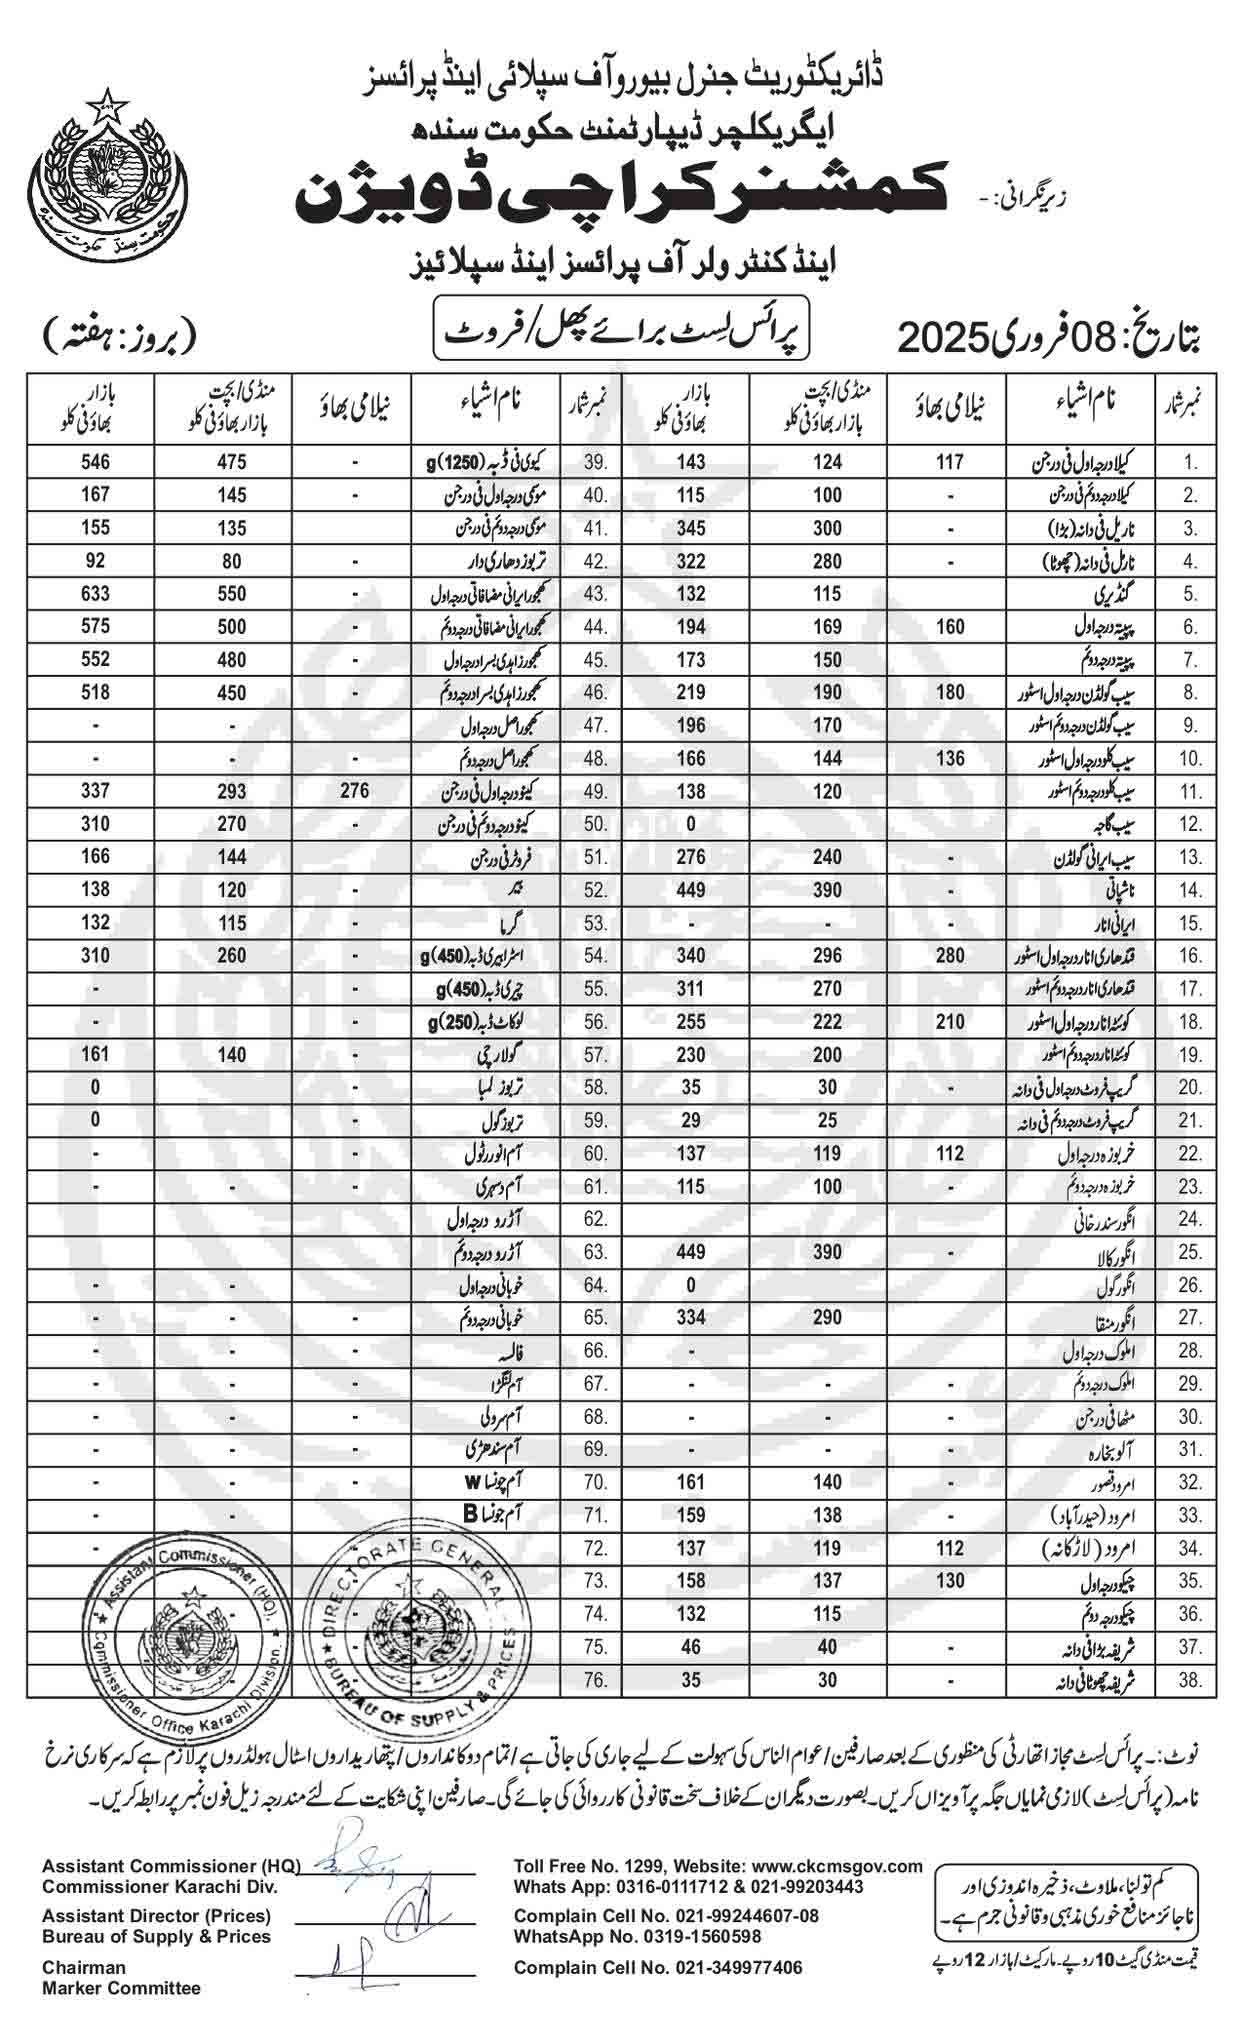 ڈائریکٹوریٹ جنرل بیورو آف سپلائی اینڈ پرائسز
ایگریکلچر ڈیپارٹمنٹ حکومت سندھ
زیر نگرانی: - کمشنر کراچی ڈویژن
اینڈ کنٹرولر آف پرائسز اینڈ سپلائیز
بتاریخ: 08 فروری 2025 پرائس لسٹ برائے پھل/فروٹ (بروز: ہفتہ)
نمبر شمار نام اشیاء نیلامی بھاؤ منڈی/بچت بازار بھاؤ فی کلو بازار بھاؤ فی کلو نمبر شمار نام اشیاء نیلامی بھاؤ منڈی/بچت بازار بھاؤ فی کلو بازار بھاؤ فی کلو
1. کیلا درجہ اول فی درجن 117 124 143 39. کیوی فی ڈبہ (1250)g - 475 546
2. کیلا درجہ دوئم فی درجن - 100 115 40. موسمی درجہ اول فی درجن - 145 167
3. ناریل فی دانہ (بڑا) - 300 345 41. موسمی درجہ دوئم فی درجن 135 155
4. نارل فی دانہ (چھوٹا) - 280 322 42. تربوز دھاری دار - 80 92
5. گنڈیری 115 132 43. کھجور ایرانی مضافاتی درجہ اول - 550 633
6. پپیتہ درجہ اول 160 169 194 44. کھجور ایرانی مضافاتی درجہ دوئم - 500 575
7. پپیتہ درجہ دوئم 150 173 45. کھجور زاہدی بسرا درجہ اول - 480 552
8. سیب گولڈن درجہ اول اسٹور 180 190 219 46. کھجور زاہدی بسرا درجہ دوئم - 450 518
9. سیب گولڈن درجہ دوئم اسٹور 170 196 47. کھجور اصل درجہ اول - - -
10. سیب کلو درجہ اول اسٹور 136 144 166 48. کھجور اصل درجہ دوئم - - -
11. سیب کلو درجہ دوئم اسٹور 120 138 49. کینو درجہ اول فی درجن 276 293 337
12. سیب گاجہ 0 50. کینو درجہ دوئم فی درجن 270 310
13. سیب ایرانی گولڈن - 240 276 51. فروٹر فی درجن - 144 166
14. ناشپاتی - 390 449 52. بیر - 120 138
15. ایرانی انار - - - 53. گرما - 115 132
16. قندھاری انار درجہ اول اسٹور 280 296 340 54. اسٹرابیری ڈبہ (450)g - 260 310
17. قندھاری انار درجہ دوئم اسٹور 270 311 55. چیری ڈبہ (450)g - -
18. کوئٹہ انار درجہ اول اسٹور 210 222 255 56. لوکاٹ ڈبہ (250)g - -
19. کوئٹہ انار درجہ دوئم اسٹور 200 230 57. گولارچی - 140 161
20. گریپ فروٹ درجہ اول فی دانہ - 30 35 58. تربوز لمبا - 0
21. گریپ فروٹ درجہ دوئم فی دانہ 25 29 59. تربوز گول - 0
22. خربوزہ درجہ اول 112 119 137 60. آم انور رٹول - - -
23. خربوزہ درجہ دوئم - 100 115 61. آم دسہری - - -
24. انگور سندر خانی 62. آڑو درجہ اول
25. انگور کالا - 390 449 63. آڑو درجہ دوئم
26. انگور گول 0 64. خوبانی درجہ اول - - -
27. انگور منقا - 290 334 65. خوبانی درجہ دوئم - - -
28. املوک درجہ اول - 66. فالسہ - - -
29. املوک درجہ دوئم - - - 67. آم لنگڑا - - -
30. مٹھا فی درجن - - - 68. آم سرولی - - -
31. آلو بخارہ - - - 69. آم سندھڑی - - -
32. امرود قصور - 140 161 70. آم چونسا W - - -
33. امرود (حیدرآباد) - 138 159 71. آم چونسا B - - -
34. امرود (لاڑکانہ) 112 119 137 72.
35. چیکو درجہ اول 130 137 158 73.
36. چیکو درجہ دوئم 115 132 74.
37. شریفہ بڑا فی دانہ - 40 46 75.
38. شریفہ چھوٹا فی دانہ - 30 35 76.
Assistant Commissioner (HQ), Commissioner Office Karachi Division.
DIRECTORATE GENERAL BUREAU OF SUPPLY & PRICES
نوٹ:۔ پرائس لسٹ مجاز اتھارٹی کی منظوری کے بعد صارفین/عوام الناس کی سہولت کے لیے جاری کی جاتی ہے/تمام دوکانداروں/پتھاریداروں اسٹال ہولڈروں پر لازم ہے کہ سرکاری نرخ
نامہ (پرائس لسٹ) لازمی نمایاں جگہ پر آویزاں کریں۔ بصورت دیگر ان کے خلاف سخت قانونی کارروائی کی جائے گی۔ صارفین اپنی شکایت کے لئے مندرجہ زیل فون نمبر پر رابطہ کریں۔
Assistant Commissioner (HQ)
Commissioner Karachi Div.
Assistant Director (Prices)
Bureau of Supply & Prices
Chairman
Marker Committee
Toll Free No. 1299, Website: www.ckcmsgov.com
Whats App: 0316-0111712 & 021-99203443
Complain Cell No. 021-99244607-08
WhatsApp No. 0319-1560598
Complain Cell No. 021-349977406
کم تولنا، ملاوٹ، ذخیرہ اندوزی اور
ناجائز منافع خوری مذہبی و قانونی جرم ہے۔
قیمت منڈی گیٹ 10 روپے۔ مارکیٹ/بازار 12 روپے